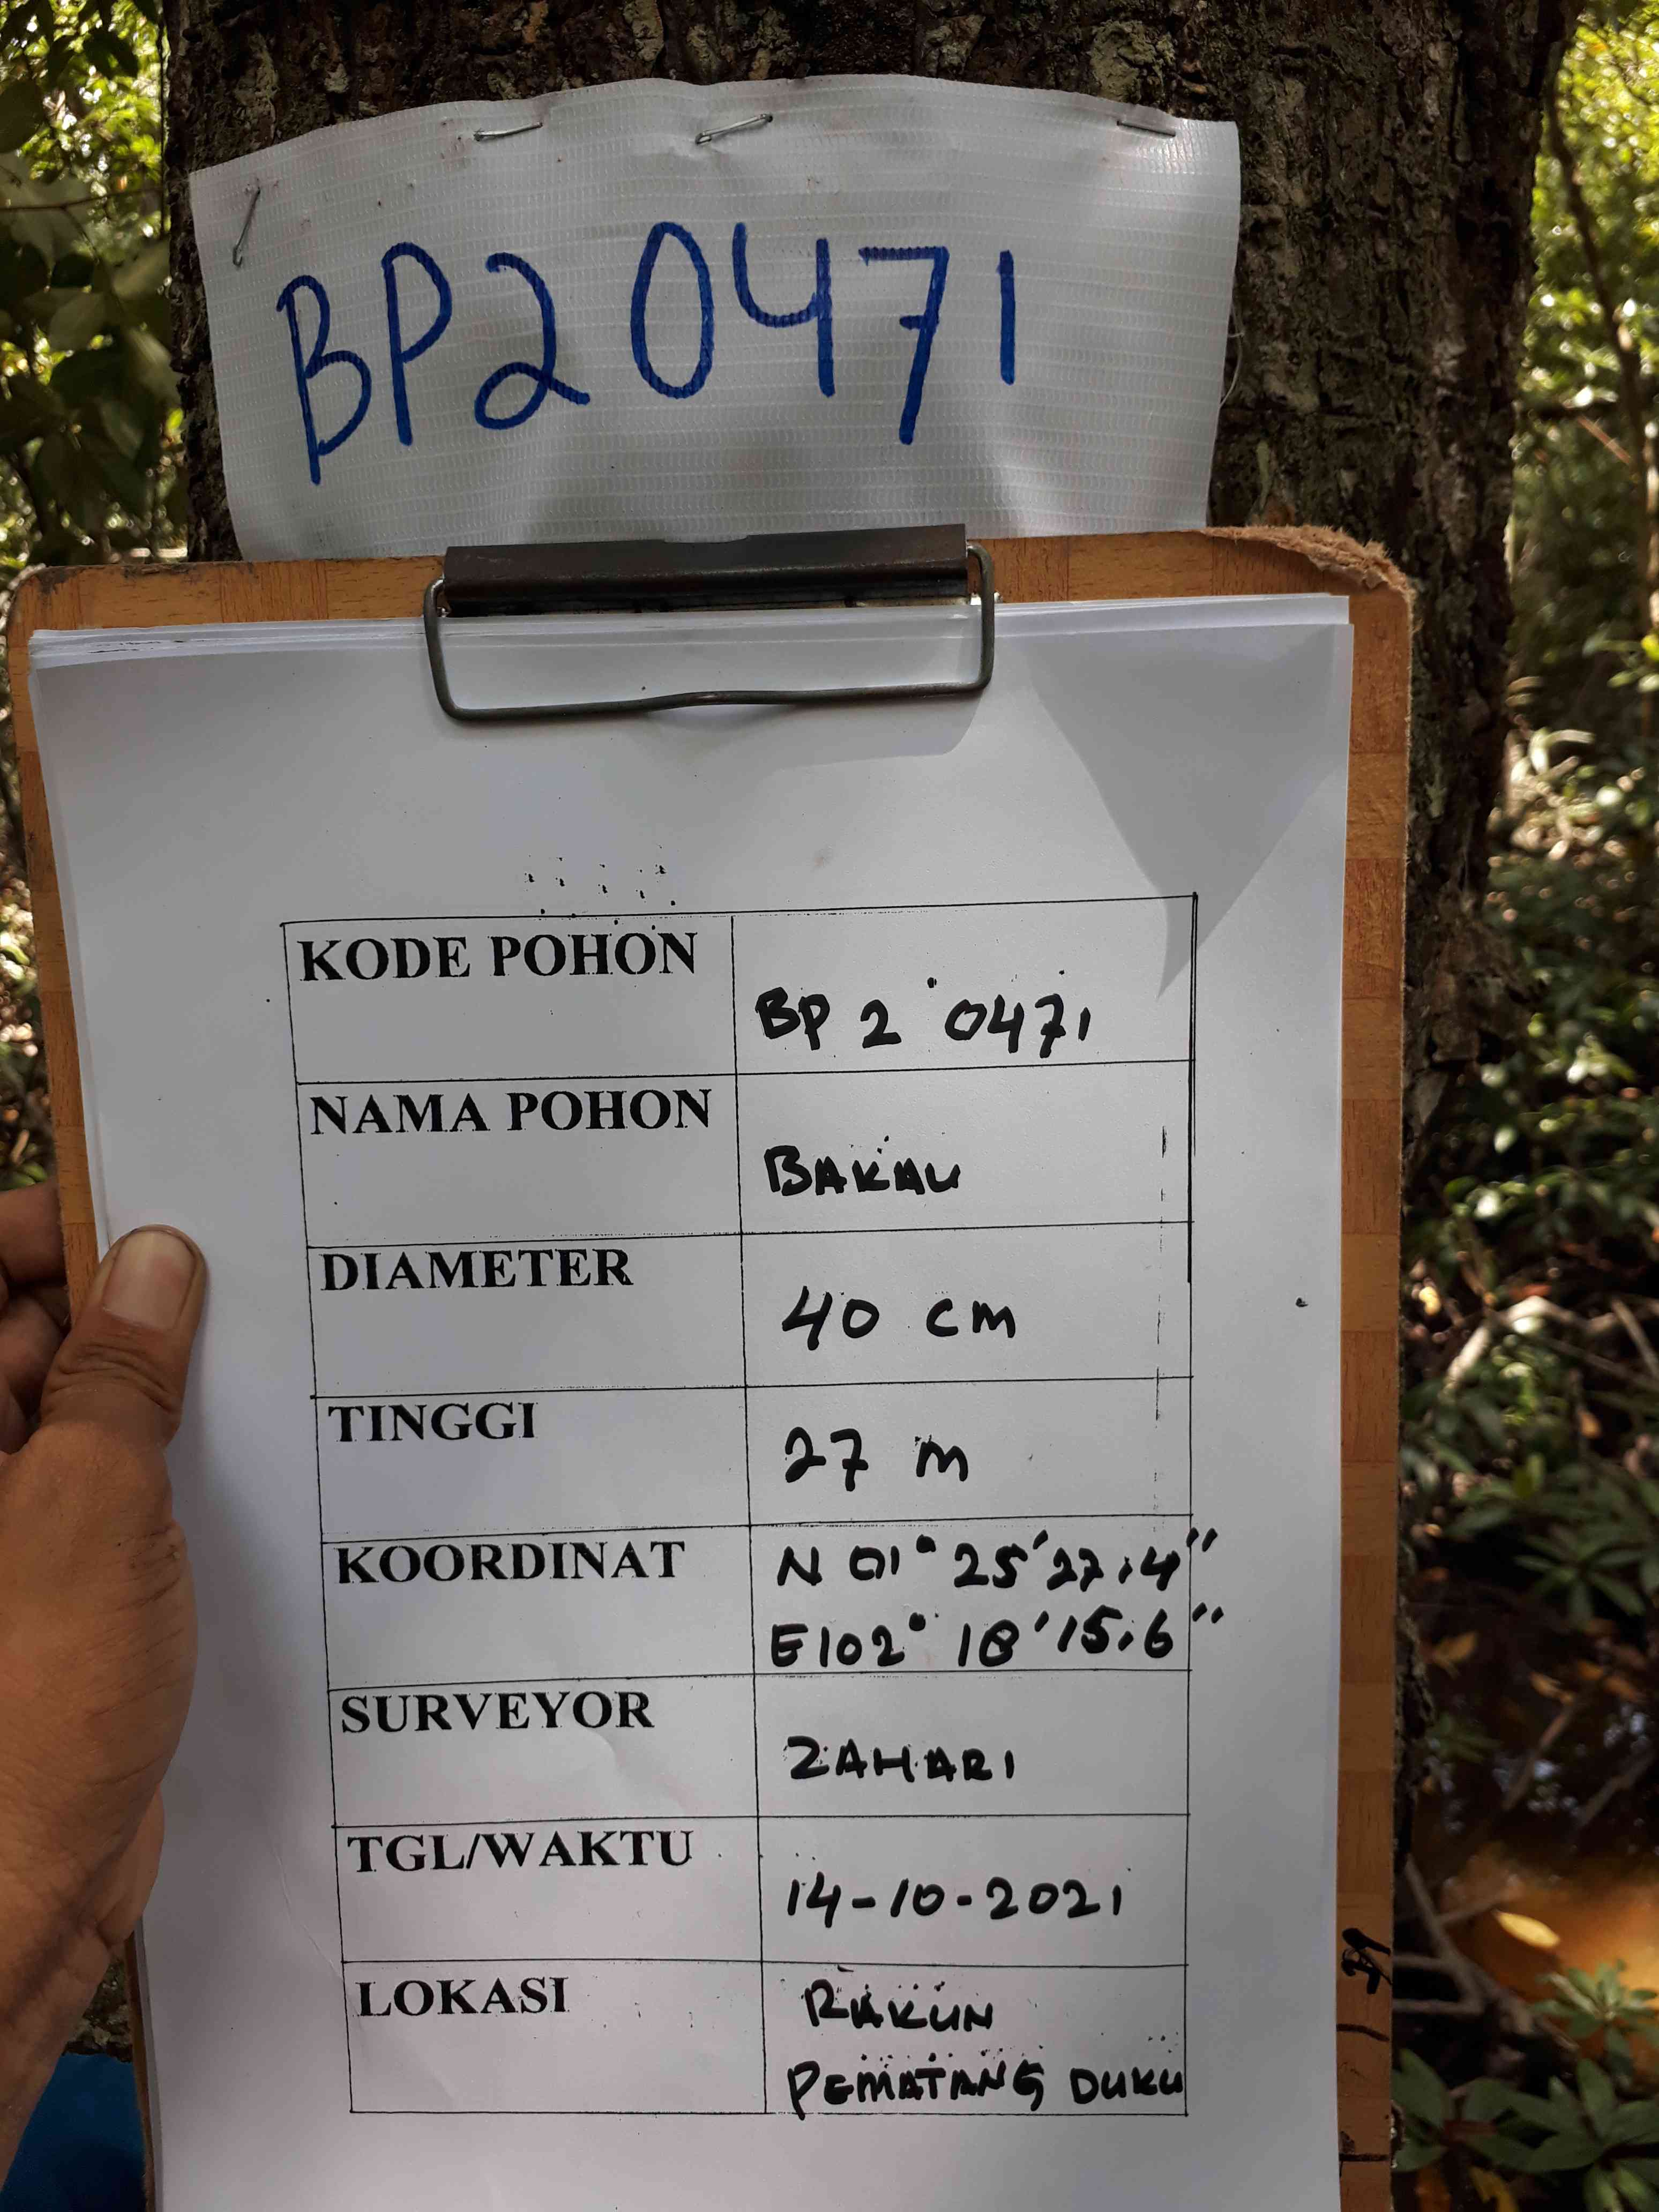 BP2 0471
KODE POHON
BP 2 0471
NAMA POHON
BAKAU
DIAMETER
40 cm
TINGGI
27 m
KOORDINAT
N 01° 25' 27.4"
E102° 18' 15.6"
SURVEYOR
ZAHARI
TGL/WAKTU
14-10-2021
LOKASI
RAKUN
PEMATANG DUKU